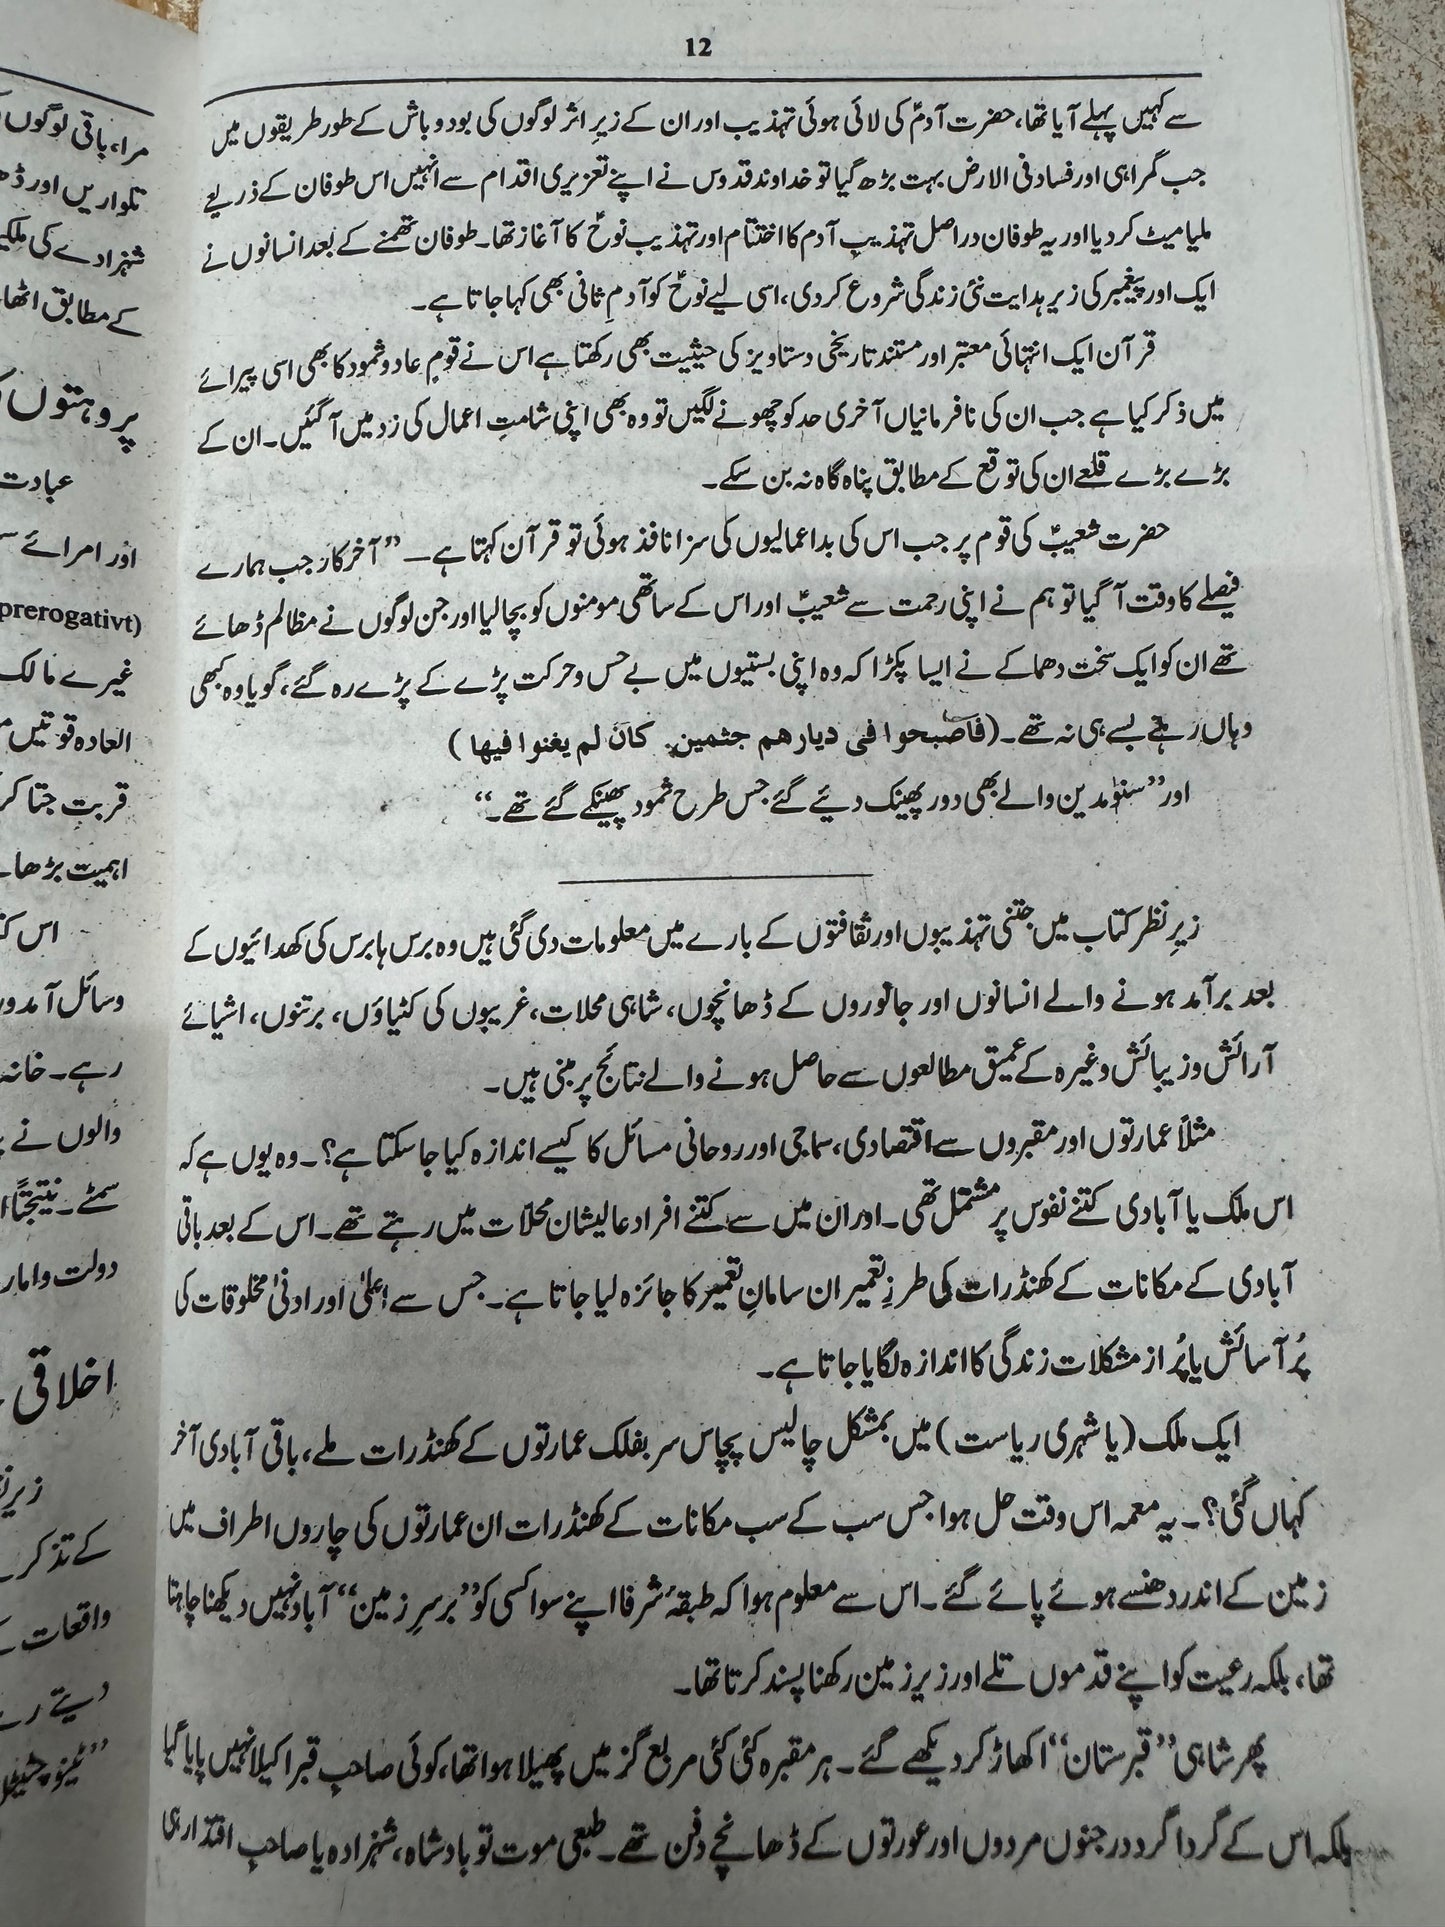 12
سے کہیں پہلے آیا تھا، حضرت آدمؑ کی لائی ہوئی تہذیب اور ان کے زیرِ اثر لوگوں کی بودوباش کے طور طریقوں میں
جب گمراہی اور فساد فی الارض بہت بڑھ گیا تو خداوند قدوس نے اپنے تعزیری اقدام سے انہیں اس طوفان کے ذریعے
ملیامیٹ کر دیا اور یہ طوفان دراصل تہذیبِ آدم کا اختتام اور تہذیب نوحؑ کا آغاز تھا۔ طوفان تھمنے کے بعد انسانوں نے
ایک اور پیغمبر کی زیر ہدایت نئی زندگی شروع کر دی، اسی لیے نوحؑ کو آدمِ ثانی بھی کہا جاتا ہے۔
قرآن ایک انتہائی معتبر اور مستند تاریخی دستاویز کی حیثیت بھی رکھتا ہے اس نے قومِ عاد و ثمود کا بھی اسی پیرائے
میں ذکر کیا ہے جب ان کی نافرمانیاں آخری حد کو چھونے لگیں تو وہ بھی اپنی شامتِ اعمال کی زد میں آ گئیں۔ ان کے
بڑے بڑے قلعے ان کی توقع کے مطابق پناہ گاہ نہ بن سکے۔
حضرت شعیبؑ کی قوم پر جب اس کی بداعمالیوں کی سزا نافذ ہوئی تو قرآن کہتا ہے۔ ”آخر کار جب ہمارے
فیصلے کا وقت آ گیا تو ہم نے اپنی رحمت سے شعیبؑ اور اس کے ساتھی مومنوں کو بچا لیا اور جن لوگوں نے مظالم ڈھائے
تھے ان کو ایک سخت دھماکے نے ایسا پکڑا کہ وہ اپنی بستیوں میں بے حس و حرکت پڑے کے پڑے رہ گئے، گویا وہ کبھی
وہاں رہے بسے ہی نہ تھے۔ (فاصبحوا فی دیارھم جثمین۔ کان لم یغنوا فیھا)
اور ”سنو مدین والے بھی دور پھینک دیئے گئے جس طرح ثمود پھینکے گئے تھے۔“
زیرِ نظر کتاب میں جتنی تہذیبوں اور ثقافتوں کے بارے میں معلومات دی گئی ہیں وہ برس ہا برس کی کھدائیوں کے
بعد برآمد ہونے والے انسانوں اور جانوروں کے ڈھانچوں، شاہی محلات، غریبوں کی کٹیاؤں، برتنوں، اشیائے
آرائش و زیبائش وغیرہ کے عمیق مطالعوں سے حاصل ہونے والے نتائج پر مبنی ہیں۔
مثلاً عمارتوں اور مقبروں سے اقتصادی، سماجی اور روحانی مسائل کا کیسے اندازہ کیا جا سکتا ہے؟۔ وہ یوں ہے کہ
اس ملک یا آبادی کتنے نفوس پر مشتمل تھی۔ اور ان میں سے کتنے افراد عالیشان محلات میں رہتے تھے۔ اس کے بعد باقی
آبادی کے مکانات کے کھنڈرات کی طرزِ تعمیر ان سامانِ تعمیر کا جائزہ لیا جاتا ہے۔ جس سے اعلیٰ اور ادنیٰ مخلوقات کی
پُر آسائش یا پُر از مشکلات زندگی کا اندازہ لگایا جاتا ہے۔
ایک ملک (یا شہری ریاست) میں بمشکل چالیس پچاس سر بفلک عمارتوں کے کھنڈرات ملے، باقی آبادی آخر
کہاں گئی؟۔ یہ معمہ اس وقت حل ہوا جس سب کے سب مکانات کے کھنڈرات ان عمارتوں کی چاروں اطراف میں
زمین کے اندر دھنسے ہوئے پائے گئے۔ اس سے معلوم ہوا کہ طبقۂ شرفا اپنے سوا کسی کو ”برسرِ زمین“ آباد نہیں دیکھنا چاہتا
تھا، بلکہ رعیت کو اپنے قدموں تلے اور زیرِ زمین رکھنا پسند کرتا تھا۔
پھر شاہی ”قبرستان“ اکھاڑ کر دیکھے گئے۔ ہر مقبرہ کئی کئی مربع گز میں پھیلا ہوا تھا، کوئی صاحبِ قبر اکیلا نہیں پایا گیا
بلکہ اس کے گردا گرد درجنوں مردوں اور عورتوں کے ڈھانچے دفن تھے۔ طبعی موت تو بادشاہ، شہزادہ یا صاحبِ اقتدار ہی
مرا، باقی لوگوں
تلواریں اور
شہزادے کی
کے مطابق اٹھا
پروہتوں
عبادت
اور امرائے
(prerogativt
غیرے مالک
العادہ قوتیں
قربت جتا کر
اہمیت بڑھا
اس
وسائل آمدو
رہے۔ خانہ
والوں نے
سمٹے۔ نتیجتاً
دولت و امار
اخلاقی
زیرِ
کے تذکر
واقعات
دیتے